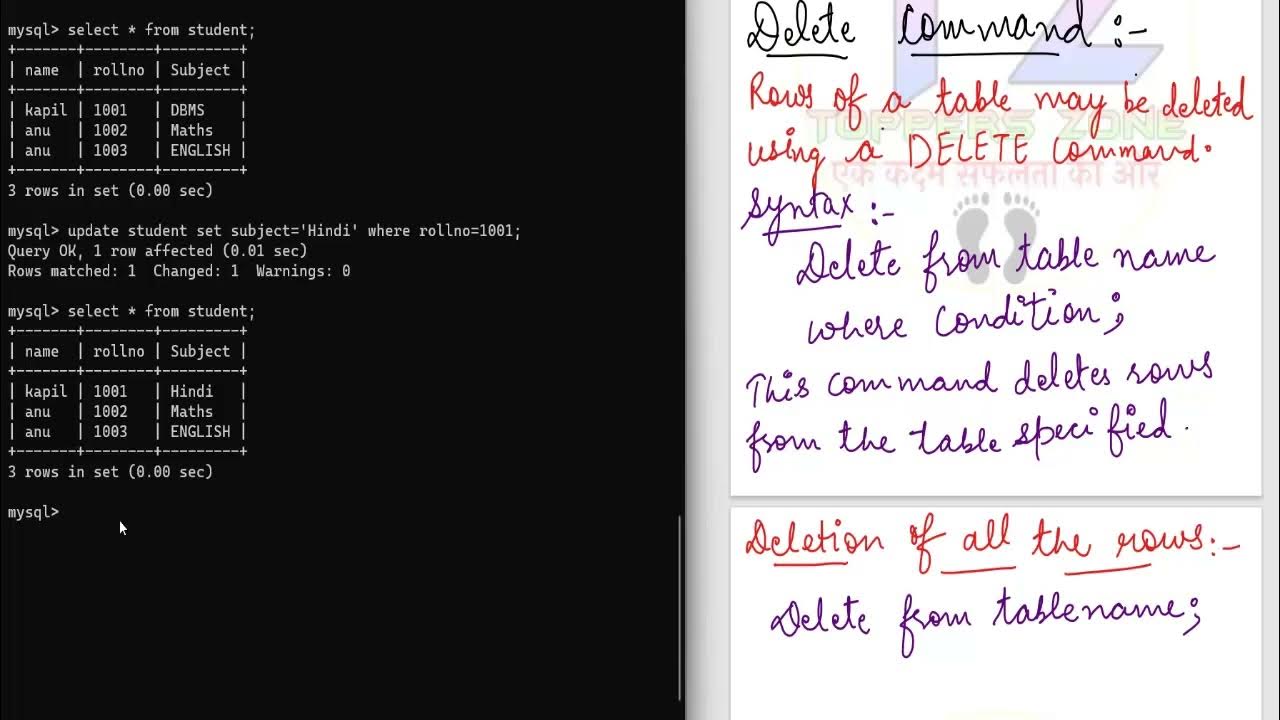 mysql> select * from student;
+-------+--------+---------+
| name  | rollno | Subject |
+-------+--------+---------+
| kapil | 1001   | DBMS    |
| anu   | 1002   | Maths   |
| anu   | 1003   | ENGLISH |
+-------+--------+---------+
3 rows in set (0.00 sec)
mysql> update student set subject='Hindi' where rollno=1001;
Query OK, 1 row affected (0.01 sec)
Rows matched: 1  Changed: 1  Warnings: 0
mysql> select * from student;
+-------+--------+---------+
| name  | rollno | Subject |
+-------+--------+---------+
| kapil | 1001   | Hindi   |
| anu   | 1002   | Maths   |
| anu   | 1003   | ENGLISH |
+-------+--------+---------+
3 rows in set (0.00 sec)
mysql>
Delete Command :-
Rows of a table may be deleted
TOPPERS ZONE
using a DELETE Command.
एक कदम सफलता की ओर
Syntax :-
Delete from table name
where Condition;
This command deletes rows
from the table specified.
Deletion of all the rows:-
Delete from tablename;